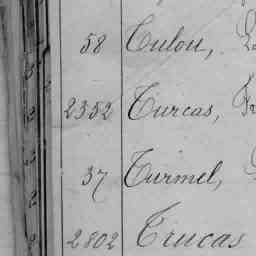 58 Tulou,
2352 Turcas, Fr
37 Turmel,
2802 Trucas